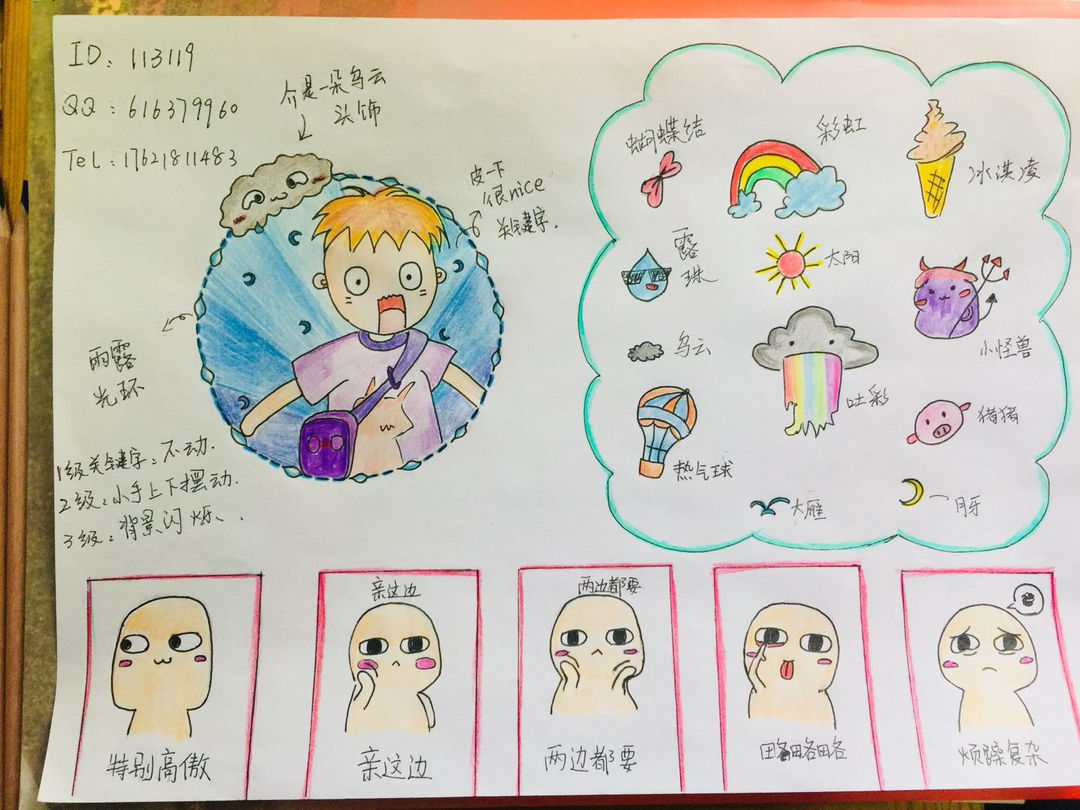 ID：113119
QQ：616379960
Tel：17621811483
介是一朵乌云
头饰
皮一下
很nice
关键字.
雨露
光环
1级关键字：不动.
2级：小手上下摆动.
3级：背景闪烁、.
蝴蝶结
彩虹
冰淇凌
露
珠
太阳
小怪兽
乌云
吐彩
猪猪
热气球
大雁
月牙
亲这边
两边都要
特别高傲
亲这边
两边都要
略略略
烦躁复杂